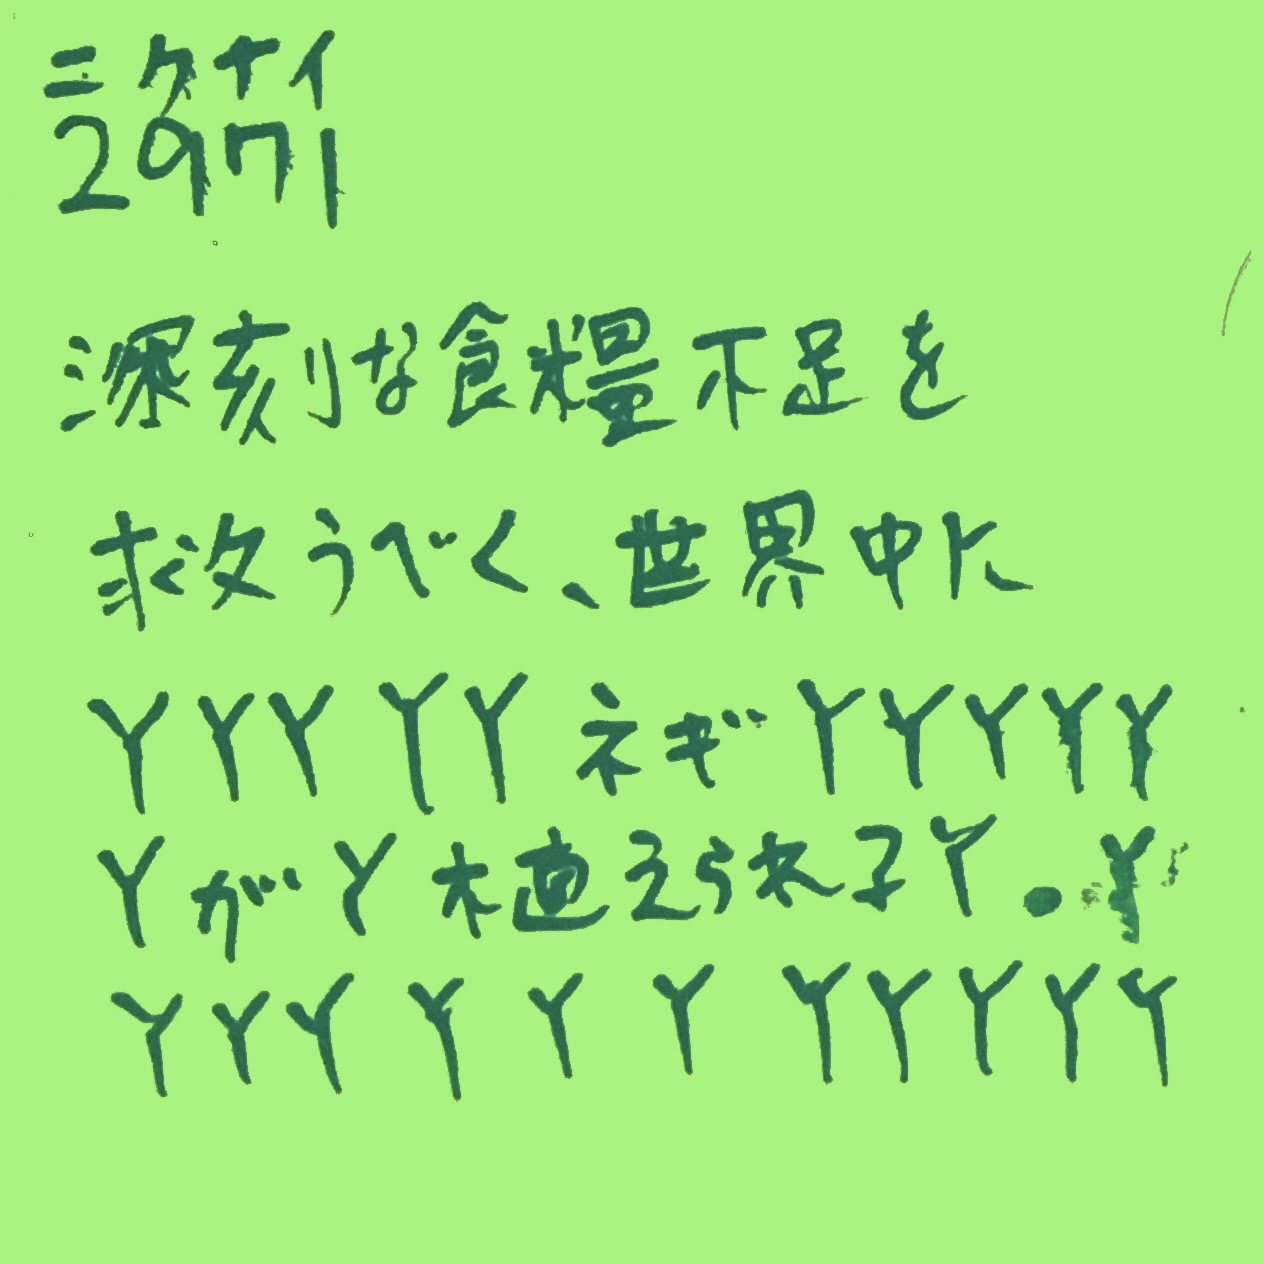 ニクナイ
2971
深刻な食糧不足を
救うべく、世界中に
YYYYYネギYYYYY
YがY植えられ子Y.Y
YYYYYYYYYYY